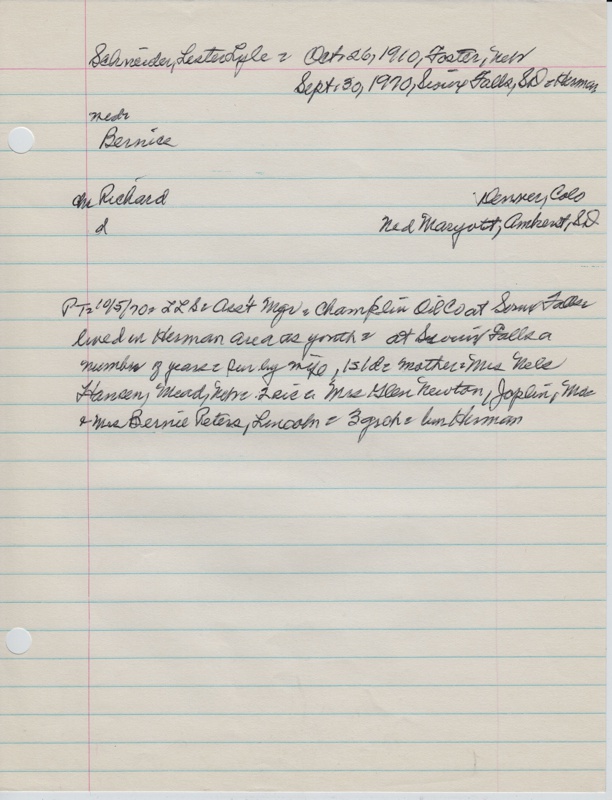 Schneider, Lester Lyle = Oct. 26, 1910, Foster, Neb
Sept. 30, 1970, Sioux Falls, SD = Herman
md:
Bernice
ch Richard Denver, Colo
d Ned Maryott, Amherst, S.D.
PT = 10/5/70 = LLS = Ass't Mgr = Champlin Oil Co at Sioux Falls =
lived in Herman area as youth = at Sioux Falls a
number of years = sur by wife, 1s 1d = mother = Mrs Nels
Hansen, Mead, Nebr = Mrs Glen Newton, Joplin, Mo =
& Mrs Bernie Peters, Lincoln = 3 grch = bur Herman